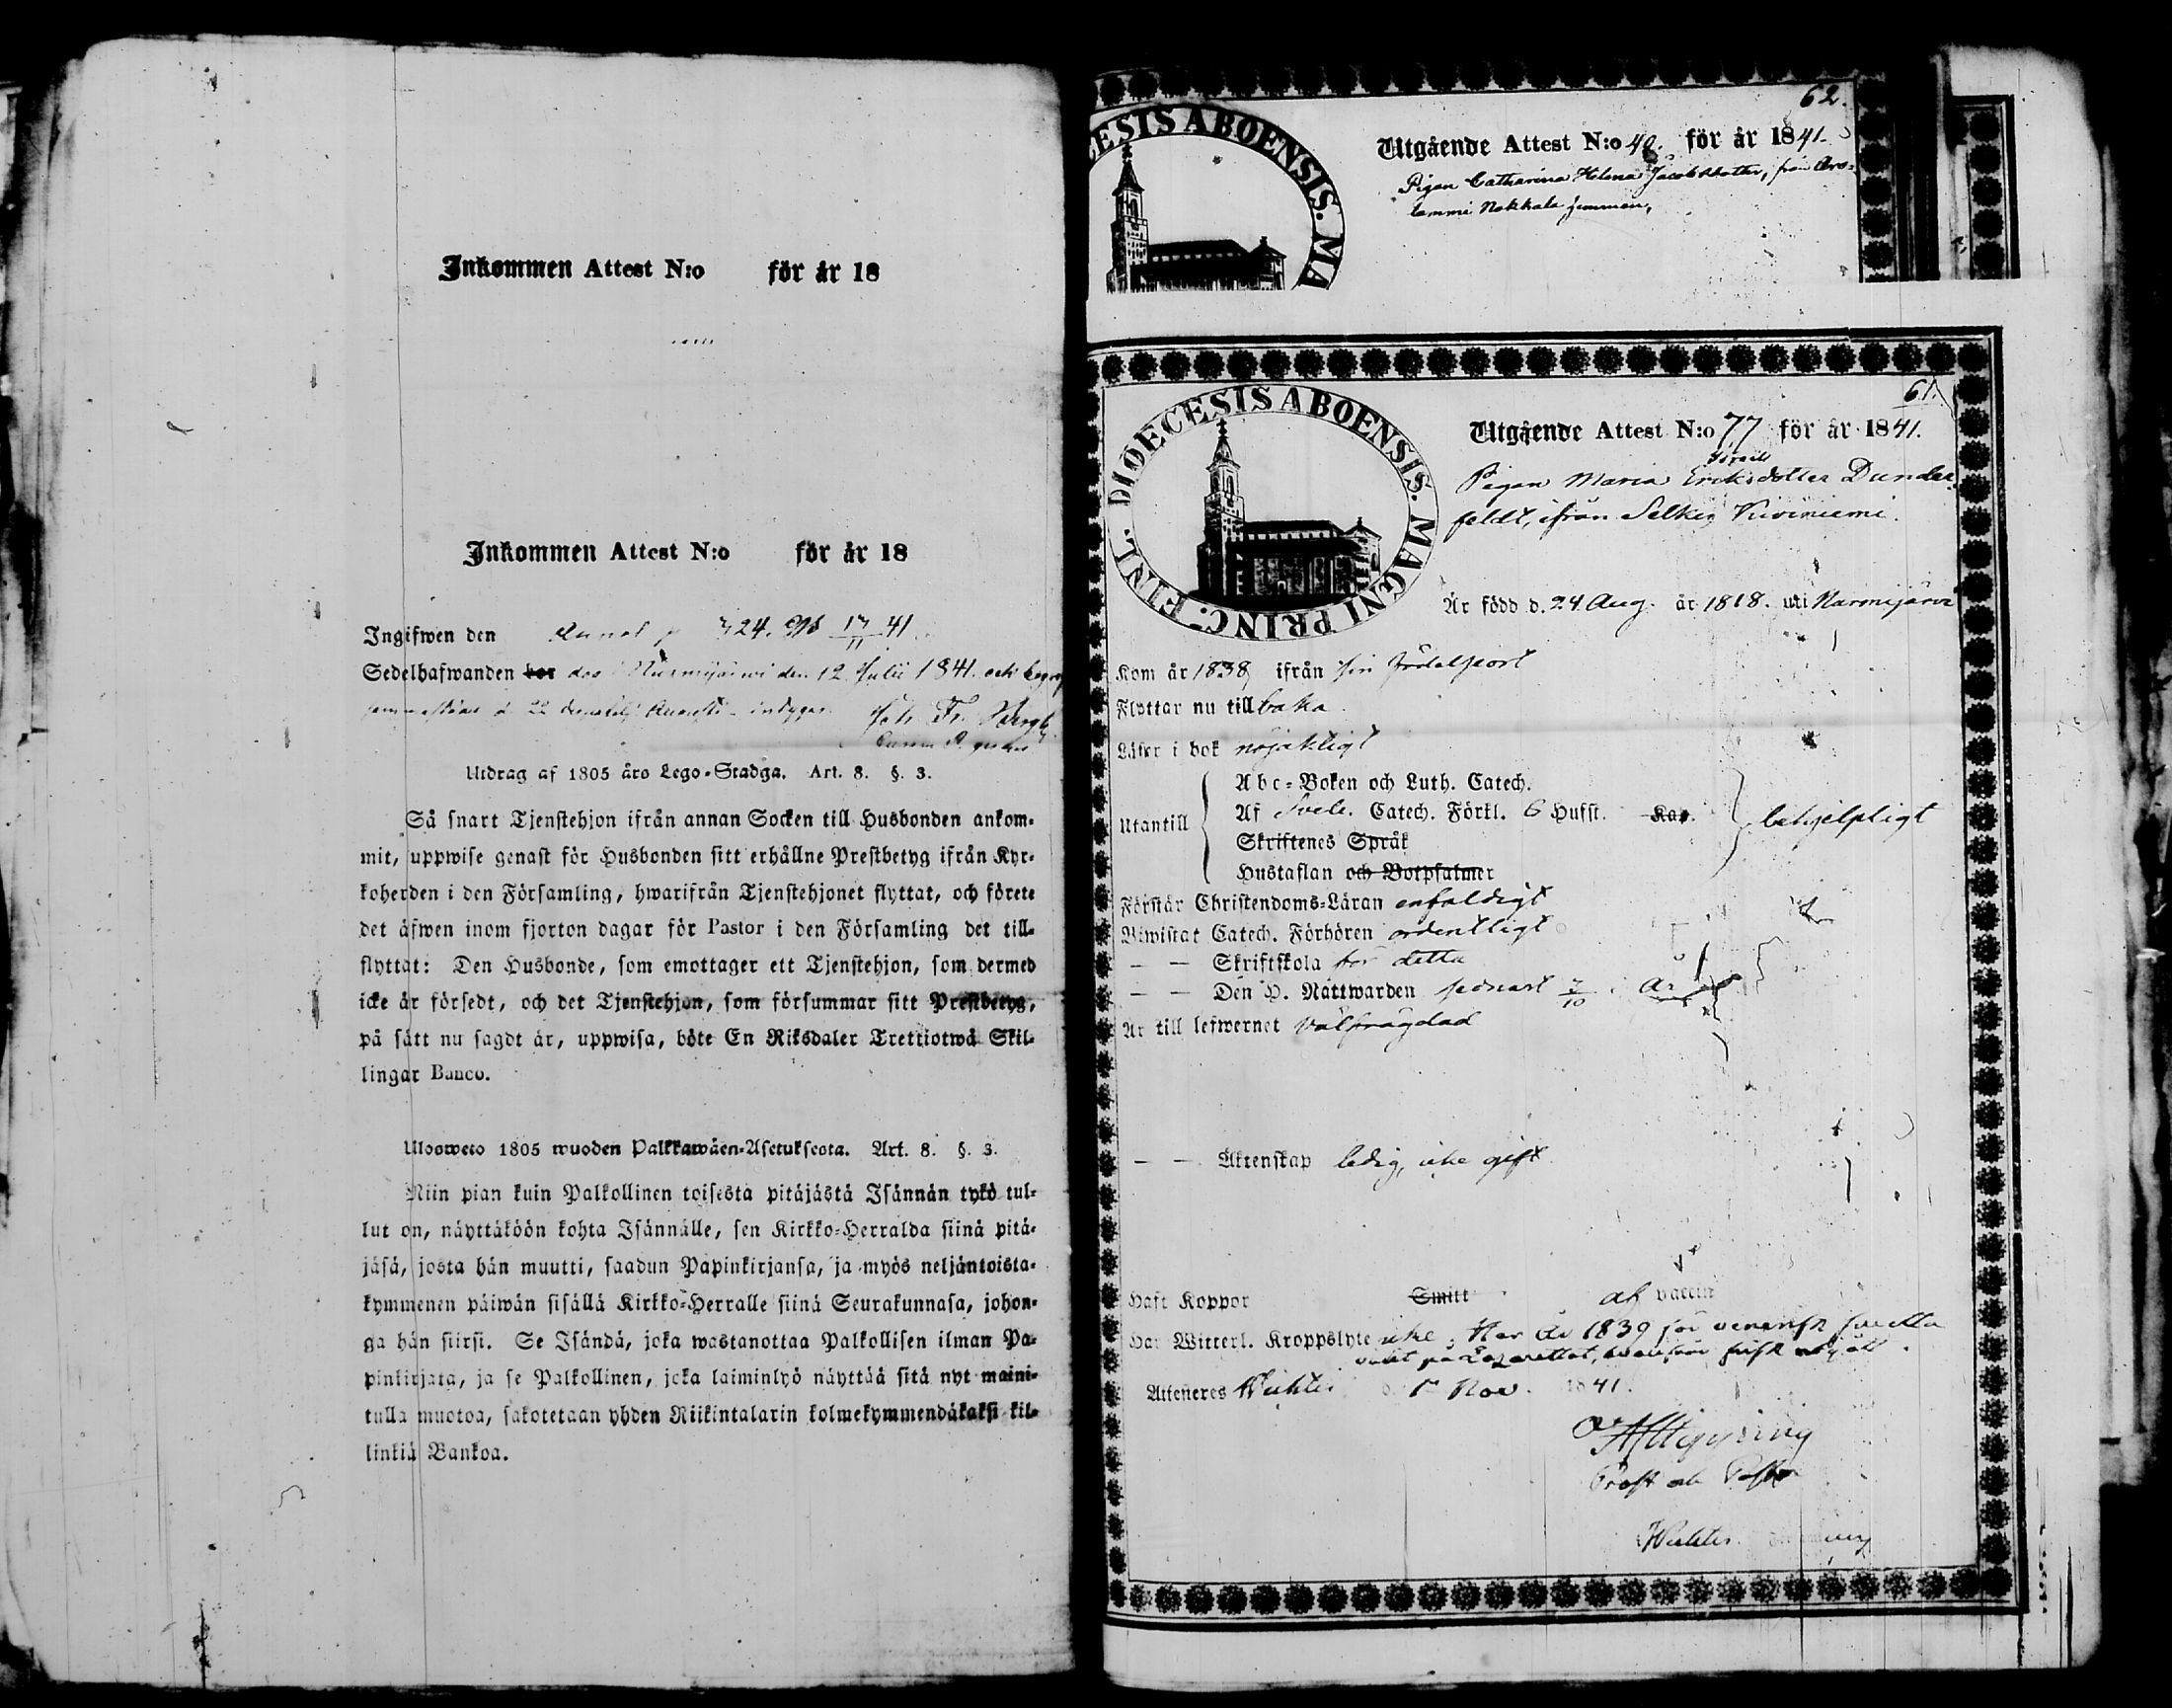 Inkommen Attest N:o för år 18
Inkommen Attest N:o för år 18
Ingifwen den 324. 17/11 41.
Sedelhafwanden har dog Nurmijärwi den 12 Julii 1841. och
d. 22 Augusti
Utdrag af 1805 års Lego-Stadga. Art. 8. §. 3.
Så snart Tjenstehjon ifrån annan Socken till Husbonden ankom-
mit, uppwise genast för Husbonden sitt erhållne Prestbetyg ifrån Kyr-
koherden i den Församling, hwarifrån Tjenstehjonet flyttat, och förete
det äfwen inom fjorton dagar för Pastor i den Församling det till-
flyttat: Den Husbonde, som emottager ett Tjenstehjon, som dermed
icke är försedt, och det Tjenstehjon, som försummar sitt Prestbetyg,
på sätt nu sagdt är, uppwisa, böte En Riksdaler Trettiotwå Skil-
lingar Banco.
Ulosweto 1805 wuoden Palkkawäen-Asetuksesta. Art. 8. §. 3.
Niin pian kuin Palkollinen toisesta pitäjästä Isännän tykö tul-
lut on, näyttäköön kohta Isännälle, sen Kirkko-Herralda siinä pitä-
jäsä, josta hän muutti, saadun Papinkirjansa, ja myös neljäntoista-
kymmenen päiwän sisällä Kirkko-Herralle siinä Seurakunnasa, johon-
ga hän siirsi. Se Isändä, joka wastanottaa Palkollisen ilman Pa-
pinkirjata, ja se Palkollinen, joka laiminlyö näyttää sitä nyt maini-
tulla muotoa, sakotetaan yhden Riikintalarin kolmekymmendäkaksi kil-
linkiä Bankoa.
62.
DIOECESIS ABOENSIS. MA
Utgående Attest N:o 40. för år 1841.
Pigan Catharina Helena Jacobsdotter, från
Nakkala hemman,
61.
DIOECESIS ABOENSIS. MAGNI PRINC. FINL.
Utgående Attest N:o 77 för år 1841.
Pigan Maria Eriksdotter Dunder-
feldt, ifrån Selki Kiviniemi.
Är född d. 24 Aug. år 1818. uti Nurmijärvi
Kom år 1838 ifrån sin födelseort
Flyttar nu tillbaka.
Läser i bok nöjaktigt
Abc-Boken och Luth. Catech.
Utantill Af Sveb. Catech. Förkl. 6 Hufst. Kap. behjelpligt
Skriftenes Språk
Hustaflan och Botpsalmer
Förstår Christendoms-Läran enfaldigt
Biwistat Catech. Förhören ordentligt
— — Skriftskola för detta
— — Den H. Nattwarden senast 7/10 i år
Är till lefwernet välfrägdad
— — Äktenskap ledig, icke gift
Haft Koppor Smitt af vaccin
Har Witterl. Kroppslyte icke. Har år 1839 för venerisk smitta
varit på Lazarettet,
Attesteras Wichtis d. Nov. 1841.
Prost och Pastor
Wichtis